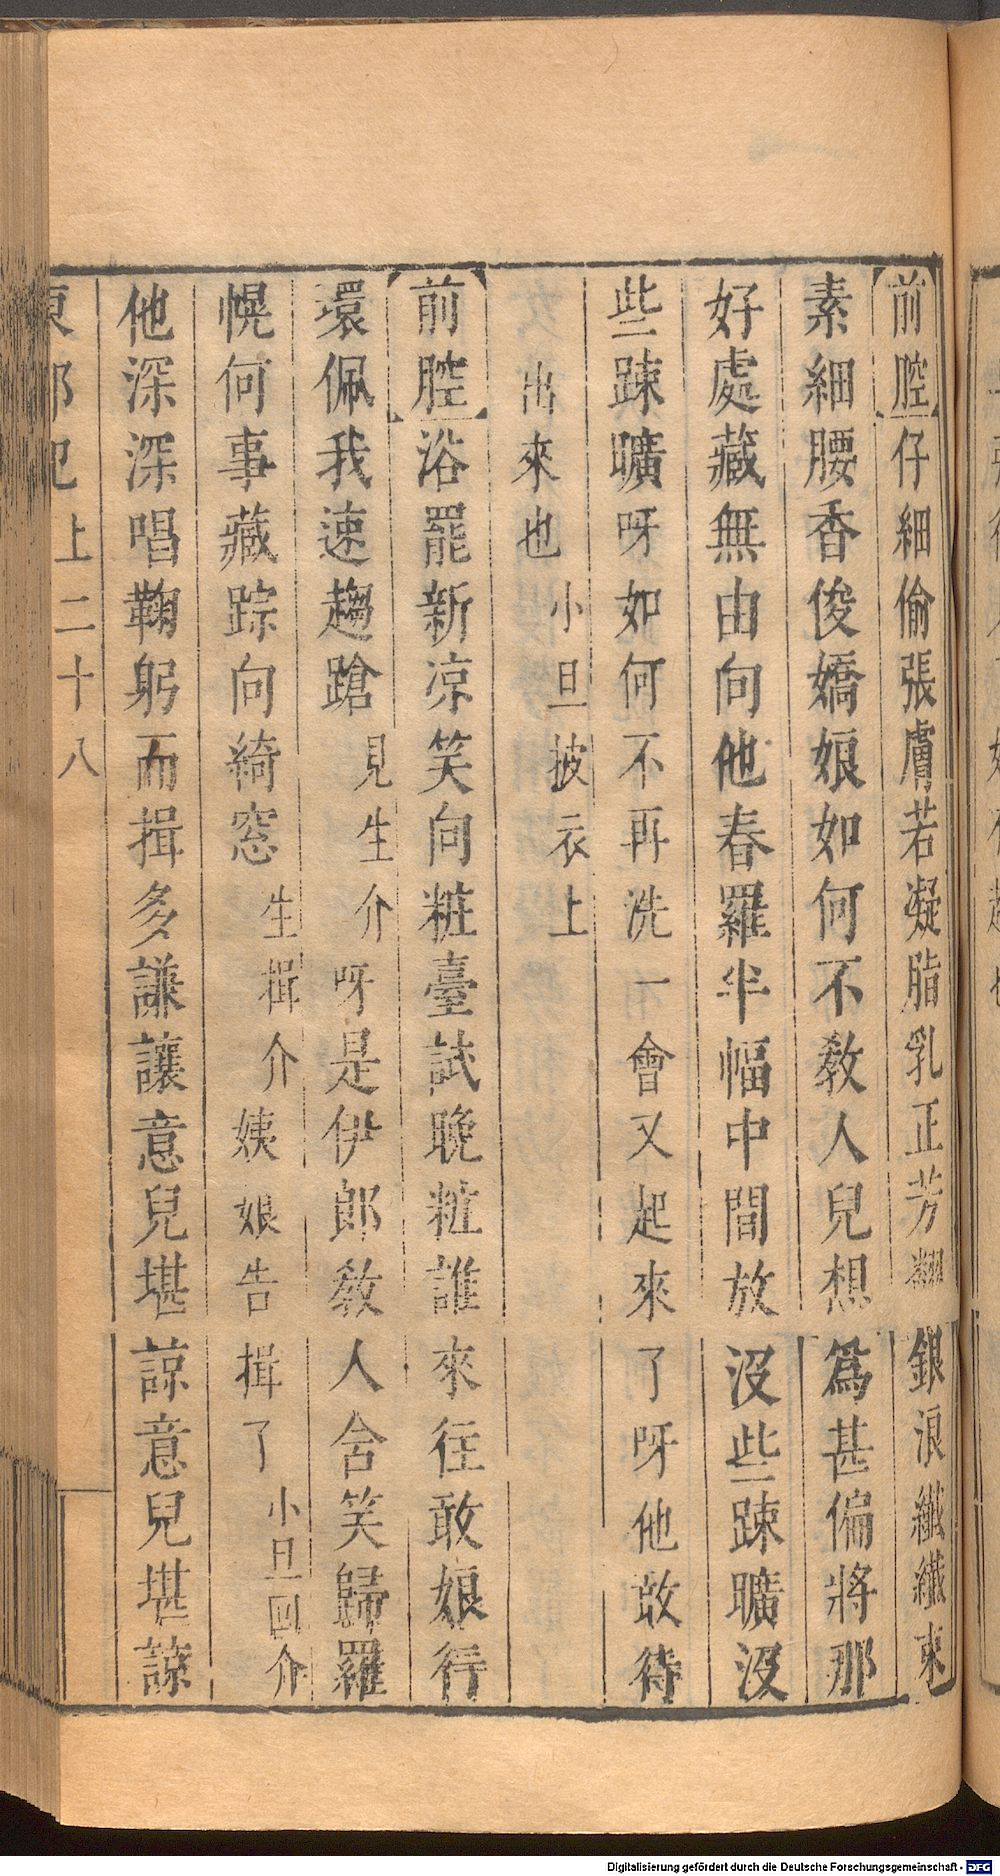 前腔仔細偷張膚若凝脂乳正芳翻銀浪纖纖束
素細腰香俊嬌娘如何不教人兒想爲甚偏將那
好處藏無由向他春羅半幅中間放沒些踈曠沒
些踈曠呀如何不再洗一會又起來了呀他敢待
出來也小旦披衣上
前腔浴罷新凉笑向粧臺試晚粧誰來往敢娘行
環佩我速趨蹌見生介呀是伊郎教人含笑歸羅
幌何事藏踪向綺窓生揖介姨娘告揖了小旦回介
他深深唱鞠躬而揖多謙讓意兒堪諒意兒堪諒
上二十八
Digitalisierung gefördert durch die Deutsche Forschungsgemeinschaft - DFG